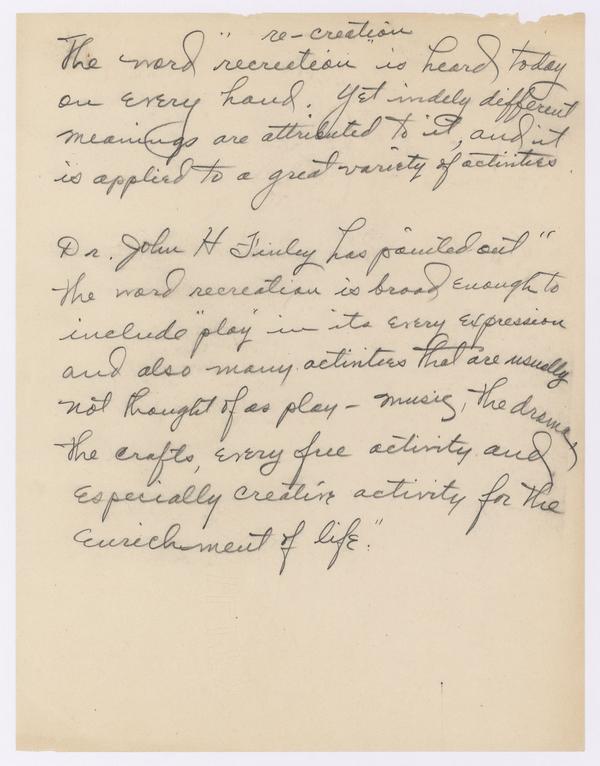 re-creation
The word "recreation" is heard today
on every hand. Yet widely different
meanings are attributed to it, and it
is applied to a great variety of activities.
Dr. John H Finley has pointed out "
the word recreation is broad enough to
include "play" in its every expression
and also many activities that are usually
not thought of as play - music, the drama,
the crafts, every free activity and
especially creative activity for the
enrichment of life."